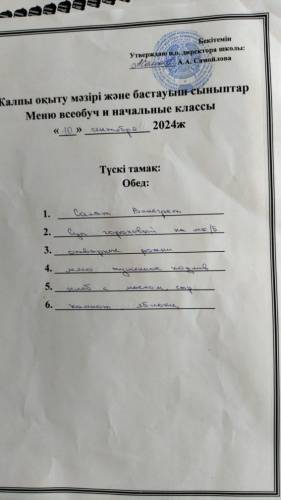 Бекітемін
Утверждаю и.о. директора школы:
А.А. Самойлова
Жалпы оқыту мәзірі және бастауыш сыныптар
Меню всеобуч и начальные классы
« 10 » сентября 2024ж
Түскі тамақ:
Обед:
1. Салат Винегрет
2. Суп гороховый на мк/б
3. отварные рожки
4. мясо тушенное
5. хлеб с маслом, сыр
6. компот, яблоки